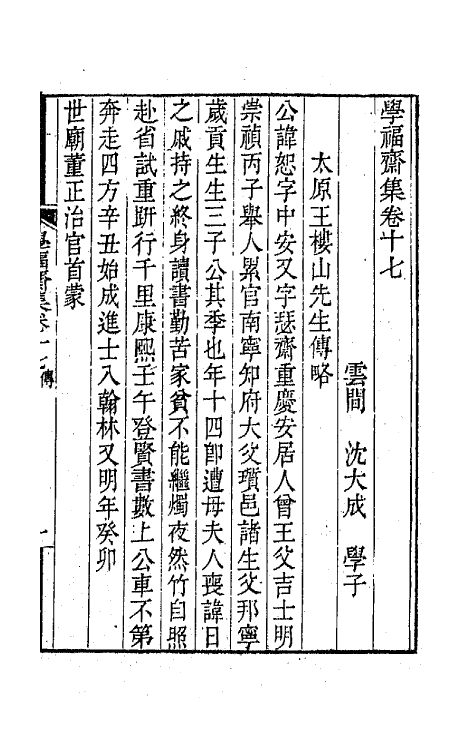 學福齋集卷十七
雲間 沈大成 學子
太原王樓山先生傳略
公諱恕字中安又字瑟齋重慶安居人曾王父吉士明
崇禎丙子舉人累官南寧知府大父瓚邑諸生父那寧
歲貢生生三子公其季也年十四卽遭母夫人喪諱日
之戚持之終身讀書勤苦家貧不能繼燭夜然竹自照
赴省試重趼行千里康熙壬午登賢書數上公車不第
奔走四方辛丑始成進士入翰林又明年癸卯
世廟董正治官首蒙
學福齋集卷十七 傳 一